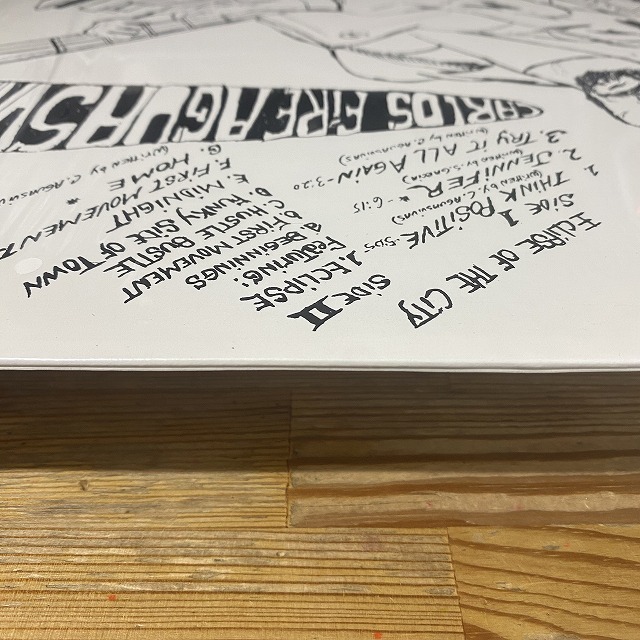 ECLIPSE OF THE CITY
SIDE 1
1. THINK POSITIVE - 5:05
(WRITTEN BY C. AGUASVIVAS)
2. JENNIFER * - 6:15
(WRITTEN BY S. GARCIA)
3. TRY IT ALL AGAIN - 3:20
(WRITTEN BY C. AGUASVIVAS)
SIDE II
1. ECLIPSE
FEATURING:
a BEGINNINGS
b. FIRST MOVEMENT
C. HUSTLE BUSTLE
D. FUNKY SIDE OF TOWN
E. MIDNIGHT
F. FIRST MOVEMENT *
G. HOME
(WRITTEN BY C. AGUASVIV
CARLOS FIRE AGUASV